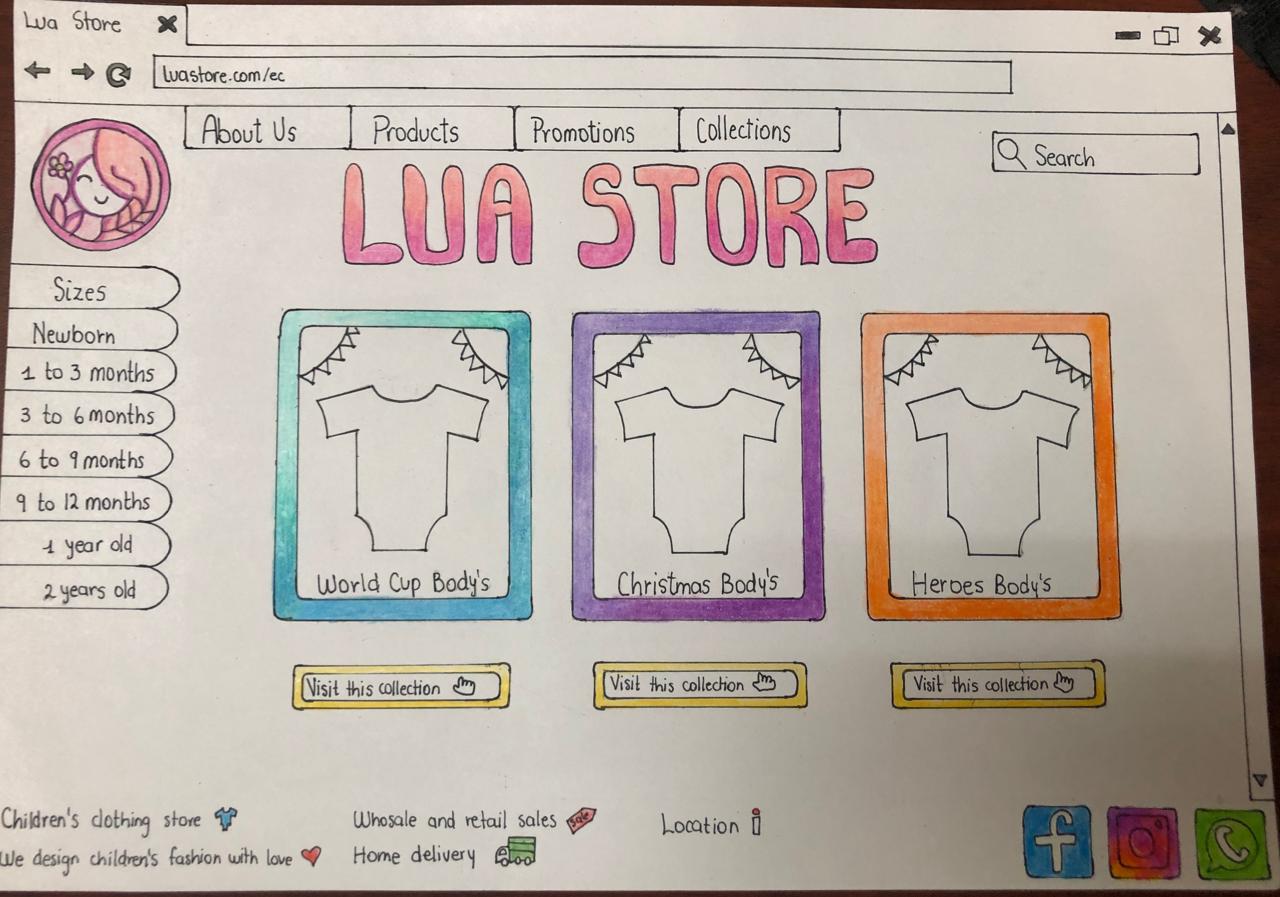 Lua Store
luastore.com/ec
About Us Products Promotions Collections
Search
LUA STORE
Sizes
Newborn
1 to 3 months
3 to 6 months
6 to 9 months
9 to 12 months
1 year old
2 years old
World Cup Body's
Christmas Body's
Heroes Body's
Visit this collection
Visit this collection
Visit this collection
Children's clothing store
We design children's fashion with love
Whosale and retail sales
Sale
Home delivery
Location